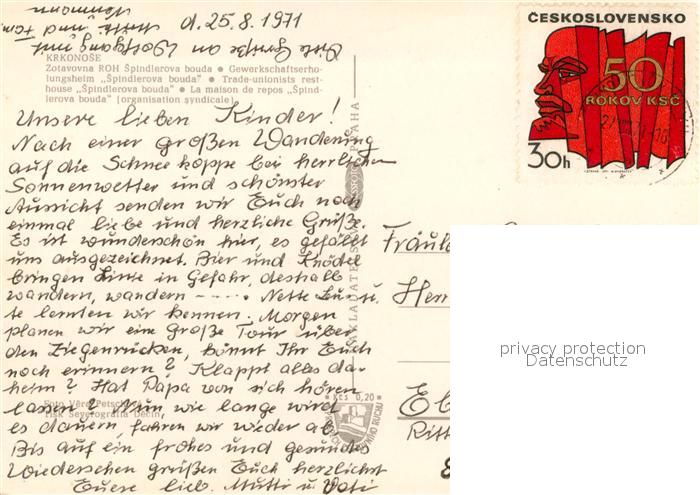 d. 25.8.1971
Viele Grüße an Wolfgang und
Familie
KRKONOŠE
Zotavovna ROH Špindlerova bouda • Gewerkschaftserho-
lungsheim „Špindlerova bouda" • Trade-unionists rest-
house „Špindlerova bouda" • La maison de repos „Špind-
lerova bouda" (organisation syndicale)
Unsere lieben Kinder!
Nach einer großen Wanderung
auf die Schneekoppe bei herrlichem
Sonnenwetter und schönster
Aussicht senden wir Euch noch
einmal liebe und herzliche Grüße.
Es ist wunderschön hier, es gefällt
uns ausgezeichnet. Bier und Knödel
bringen Linie in Gefahr, deshalb
wandern, wandern ---- Nette Leu-
te lernten wir kennen. Morgen
planen wir eine große Tour über
den Ziegenrücken, könnt Ihr Euch
noch erinnern? Klappt alles da-
heim? Hat Papa von sich hören
lassen? Nun wie lange wird
es dauern, fahren wir wieder ab.
Bis auf ein frohes und gesundes
Wiedersehen grüßen Euch herzlichst
Euere lieb. Mutti u. Vati
Foto Věra
Tisk Severografia Děčín
PRAHA
Kčs 0,20
ČESKOSLOVENSKO
50
ROKOV KSČ
30h
Fräul
Her
Eb
Ritt
privacy protection
Datenschutz